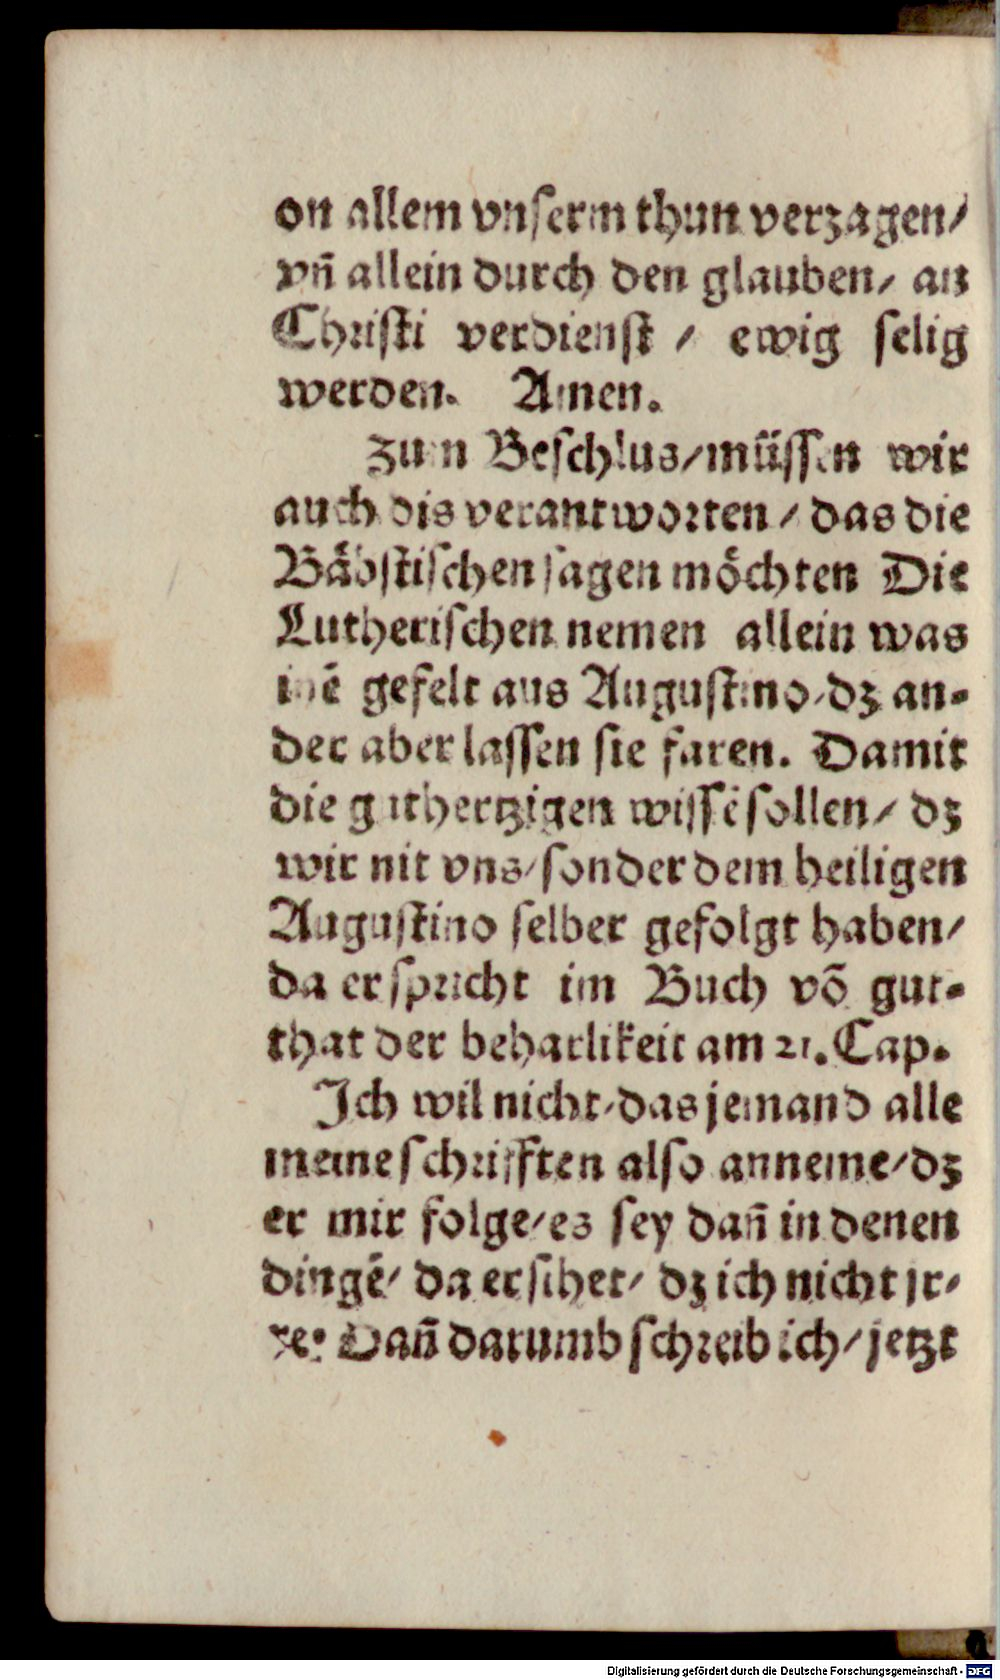 on allem vnserm thun verzagen/
vñ allein durch den glauben/ an
Christi verdienst / ewig selig
werden. Amen.
Zum Beschlus/müssen wir
auch dis verantworten/ das die
Bäbstischen sagen möchten Die
Lutherischen nemen allein was
inẽ gefelt aus Augustino/dz an-
der aber lassen sie faren. Damit
die guthertzigen wissẽ sollen/ dz
wir nit vns/sonder dem heiligen
Augustino selber gefolgt haben/
da er spricht im Buch võ gut-
that der beharlikeit am 21. Cap.
Ich wil nicht/das jemand alle
meine schrifften also anneme/dz
er mir folge/es sey dañ in denen
dingẽ/ da er sihet/ dz ich nicht jr-
re: Dañ darumb schreib ich/jetzt
Digitalisierung gefördert durch die Deutsche Forschungsgemeinschaft - DFG